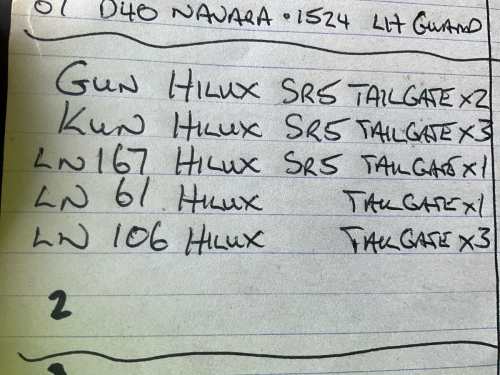 01 D40 NAVARA • 1524 LH GUARD
GUN HILUX SR5 TAILGATE x2
KUN HILUX SR5 TAILGATE x3
LN 167 HILUX SR5 TAILGATE x1
LN 61 HILUX TAILGATE x1
LN 106 HILUX TAILGATE x3
2